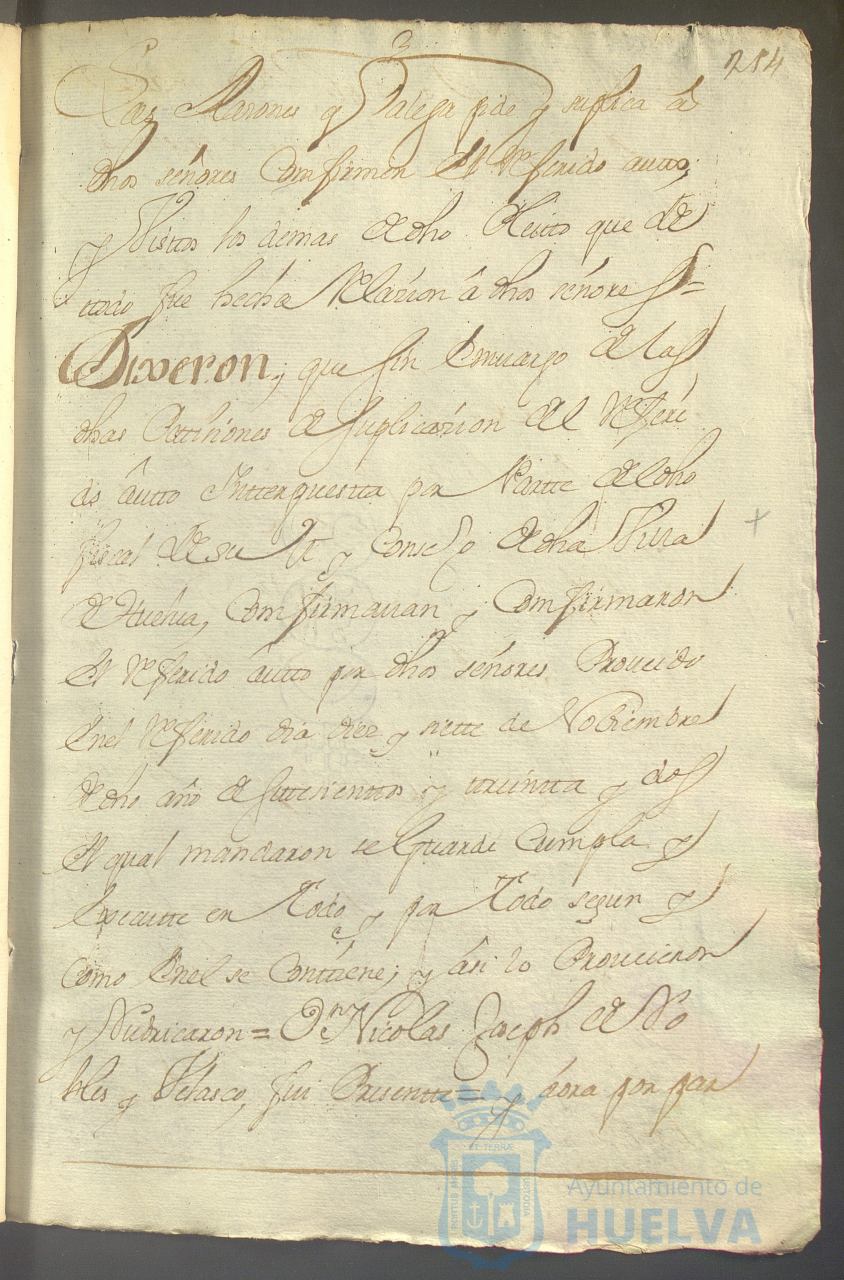 284
Las Rasones q Valega pide y suplica â
dhos señores Comfirmen El Referido autto,
y Vistos los demas de dho Pleitto que de
ttodo fue hecha Relazion â dhos señores =
Dixeron; que sin Emuargo de las
dhas Pettiziones de suplicazion del Referi
do âutto Intterpuestta por Partte del dho
fiscal de su M y Consejo de dha Villa
de Huelua, Comfirmauan y Comfirmaron
El Referido âutto por dhos señores Proueido
Enel Referido dia diez y siette de Nobiembre
de dho año de settezienttos y treintta y dos
El qual mandaron se Guarde Cumpla y
Executte en Todo y por Todo segun y
Como Enel se Conttiene; y âsi lo Proueieron
y Rubricaron = Dn Nicolas Joseph de Ro
bles y Velasco, fui Presentte = y âora por par
ET TERRÆ
PORTUS MARIS
CUSTODIA
Ayuntamiento de
HUELVA